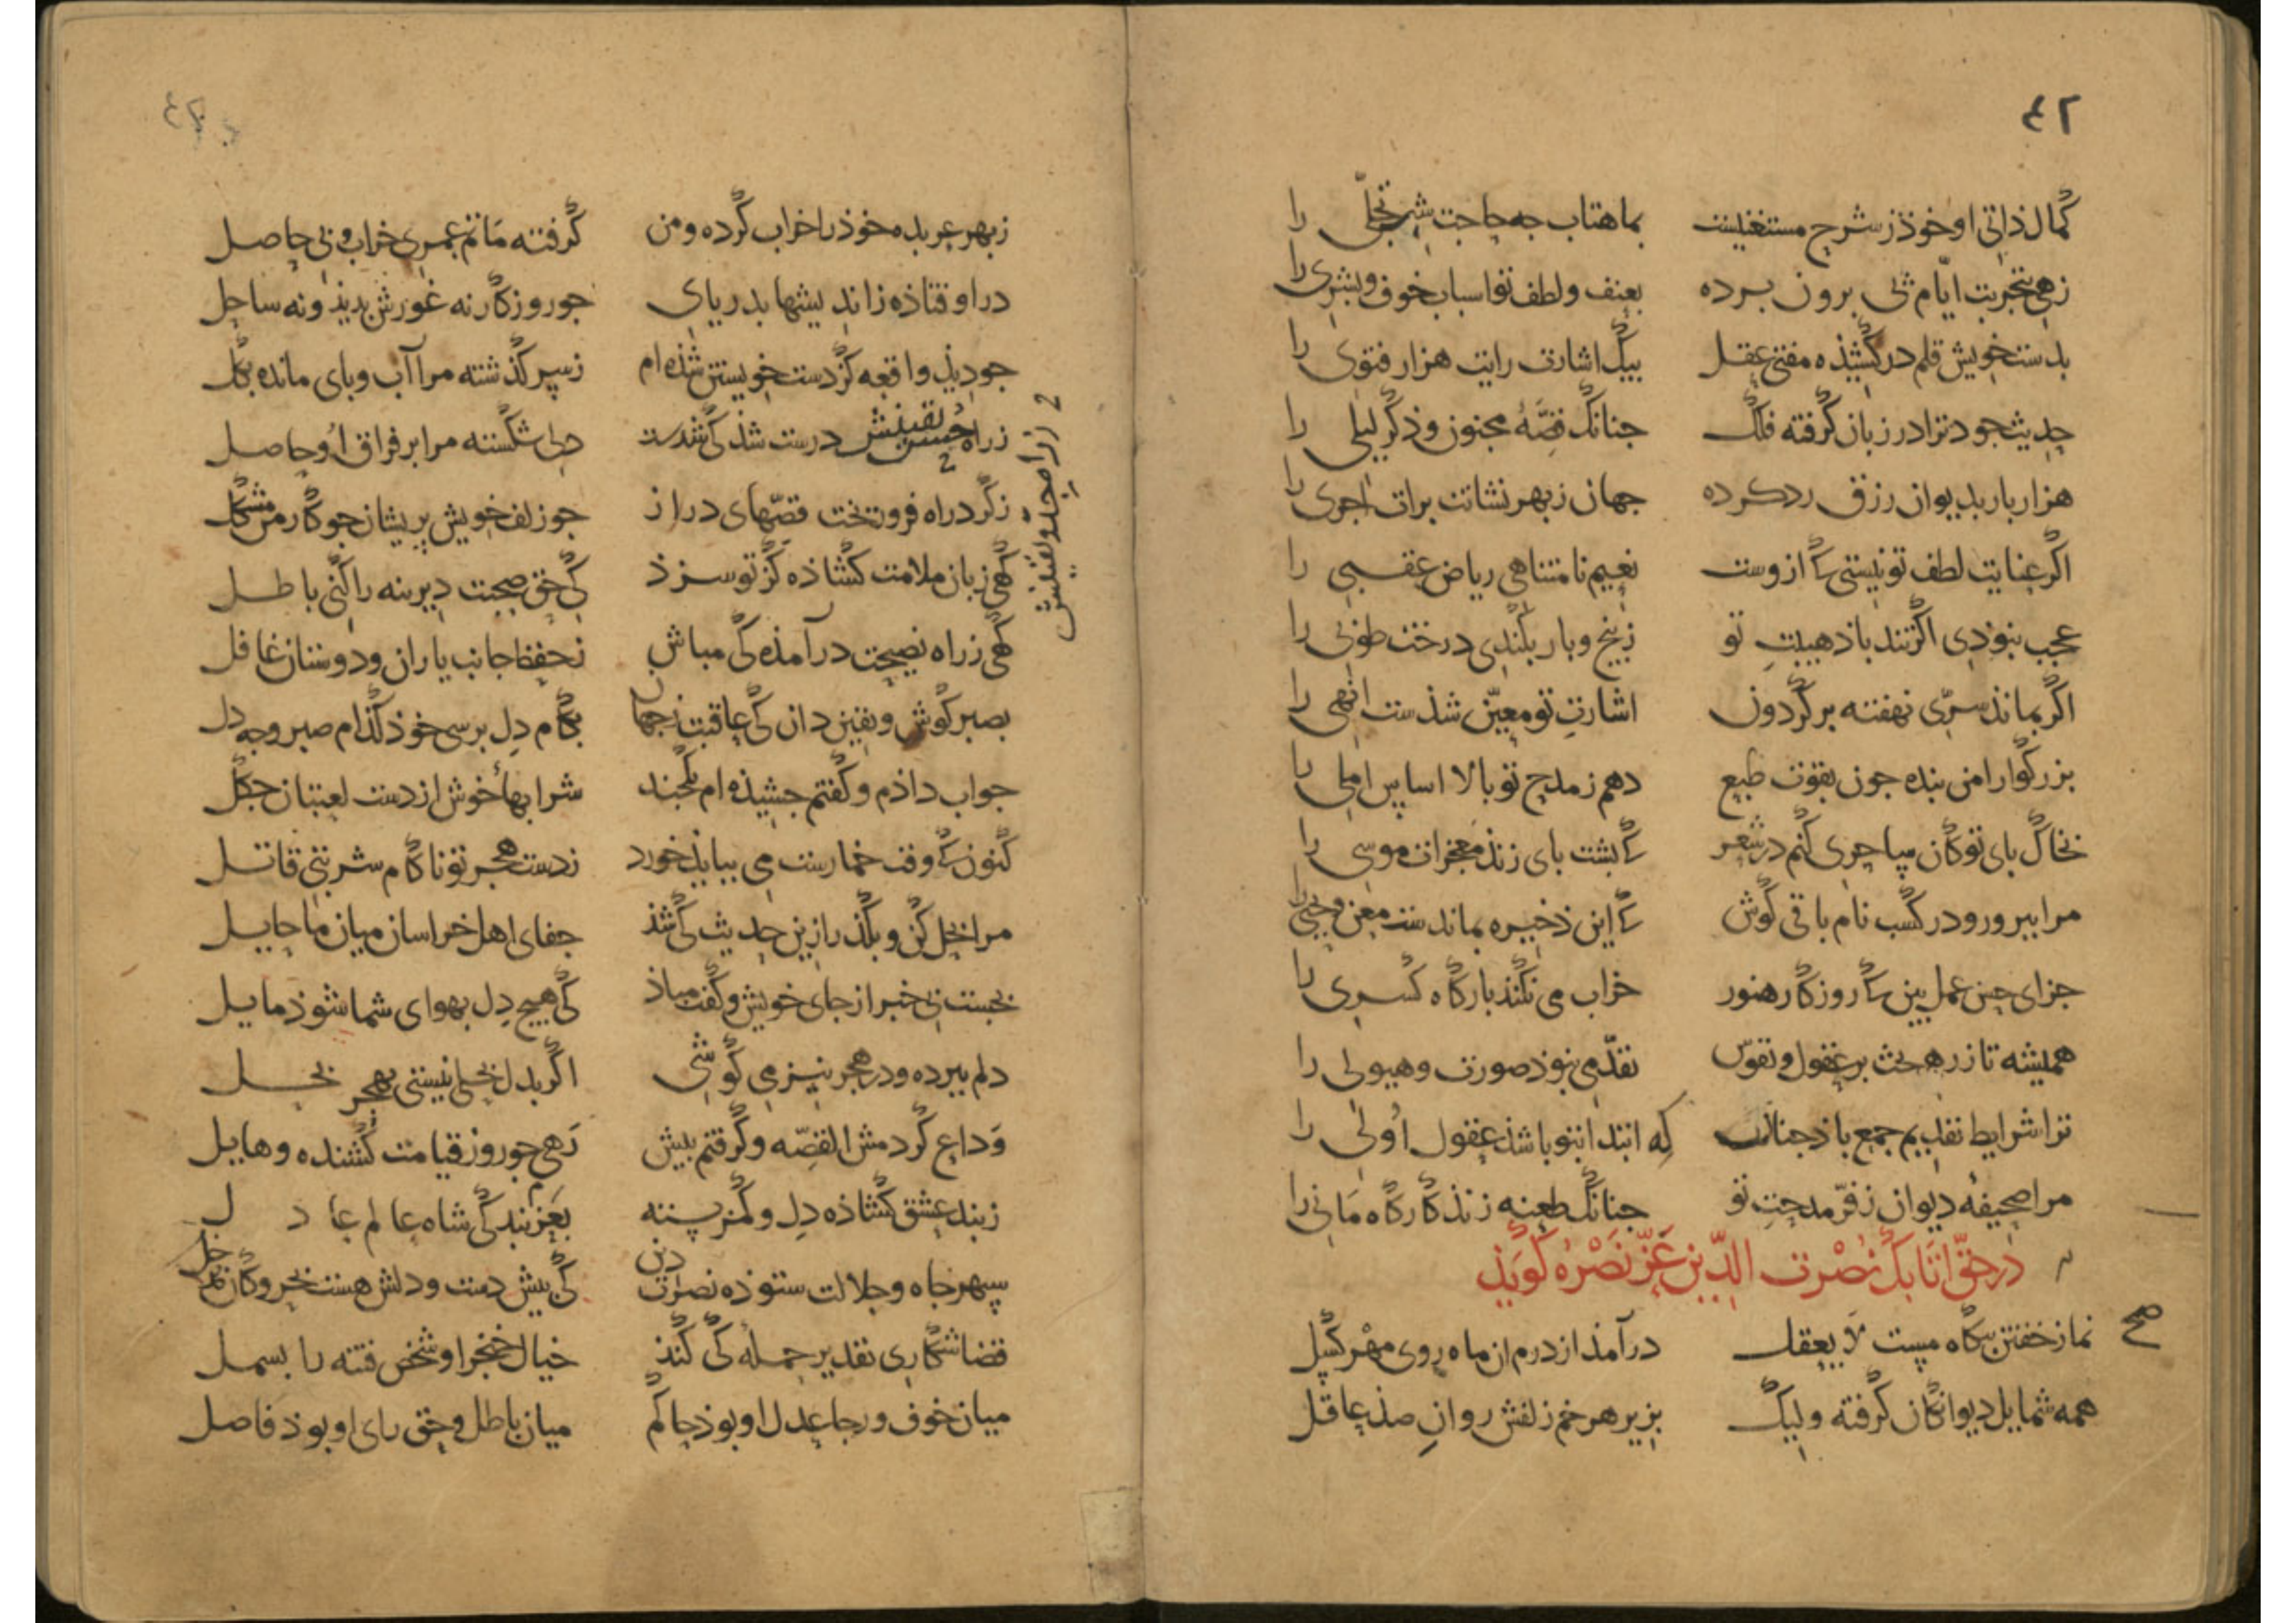 ٤٢
كمال ذاتی او خوذ ز شرح مستغنیست بماهتاب جه حاجت شب تجلّی را
زهی بتجربت ایّام ثی برون برده بعنف و لطف تو اسباب خوف و بشری را
بدست خویش قلم در کشیذه مفتی عقل بیک اشارت رایت هزار فتوی را
حدیث جود ترا در زبان گرفته فلک جنانک قصّهٔ مجنون و ذکر لیلی را
هزار بار بدیوان رزق رد کرده جهان ز بهر نشانت برات اجری را
اکر عنایت لطف تو نیستی کازوست نعیم نامتناهی ریاض عقبی را
عجب نبوذی اکر تندباد هیبت تو ز بیخ و بار بکندی درخت طوبی را
اکر بماند سرّی نهفته بر کردون اشارت تو معیّن شذست انهی را
بزرکوارا من بنده جون بقوت طبع دهم ز مدح تو بالا اساس املی را
بخاک بای تو کان ساحری کنم در شعر کابشت بای زند معجزات موسی را
مرا ببرور و در کسب نام باقی کوش کاین ذخیره بماندست معن و یحیی را
جزای حسن عمل بین کا روزکار هنوز خراب می نکند بارکاه کسری را
همیشه تا ز ره بحث بر عقول و نفوس تقدّمی نبوذ صورت و هیولی را
ترا شرایط تقدیم جمع باذ جنانک که ابتدا بتو باشذ عقول اولی را
مرا صحیفهٔ دیوان ز فرّ مدحت تو جنانک طعنه زند کارکاه مانی را
در حقّ اتابک نصرت الدّین عزّ نصره کوید
صح
نماز خفتن بیکاه مست لا یعقل درآمذ از درم ان ماه روی مهر کسل
همه شمایل دیوانکان کرفته ولیک بزیر هر خم زلفش روان صذ عاقل
ز بهر عربده خوذ را خراب کرده و من کرفته ماتم عمری خراب و بی حاصل
در اوفتاذه ز اندیشها بدریای جو روزکار نه غورش بدید و نه ساحل
جو دیذ واقعه کز دست خویشتن شذه ام ز سر کذشته مرا آب و بای مانده بکل
ز راه حسن تفتیش درست شذ کی شدست دلی شکسته مرا بر فراق او حاصل
ز کرد راه فرو ریخت قصّهای دراز جو زلف خویش بریشان جو کار من مشکل
کهی زبان ملامت کشاذه کز تو سزذ کی حق صحبت دیرینه را کنی باطل
کهی ز راه نصیحت درآمذه کی مباش ز حفظ جانب یاران و دوستان غافل
بصبر کوش و یقین دان کی عاقبت ز جهان بکام دل برسی خوذ کذام صبر و جه دل
جواب داذم و کفتم جشیذه ام یکجند شرابهاء خوش از دست لعبتان جکل
کنون کا وقت خمارست می ببایذ خورد ز دست هجر تو ناکام شربتی قاتل
مرا بحل کن و بکذر ازین حدیث کی شذ جفای اهل خراسان میان ما حایل
بجست بی خبر از جای خویش و کفت مباذ کی هیج دل بهوای شما شوذ مایل
دلم ببرده و در هجر نیز می کوشی اکر بدل بحلی نیستی بهجر بحل
وداع کردمش القصّه و کرفتم بیش رهی جو روز قیامت کشنده و هایل
ز بند عشق کشاذه دل و کمر بسته بعزم بندکی شاه عالم عادل
سبهر جاه و جلالت ستوذه نصرت دین کی بیش دست و دلش هست بحر و کان
قضا شکاری تقدیر حمله کی کند خیال خنجر او شخص فتنه را بسمل
میان خوف و رجا عدل او بوذ حاکم میان باطل و حق رای او بوذ فاصل